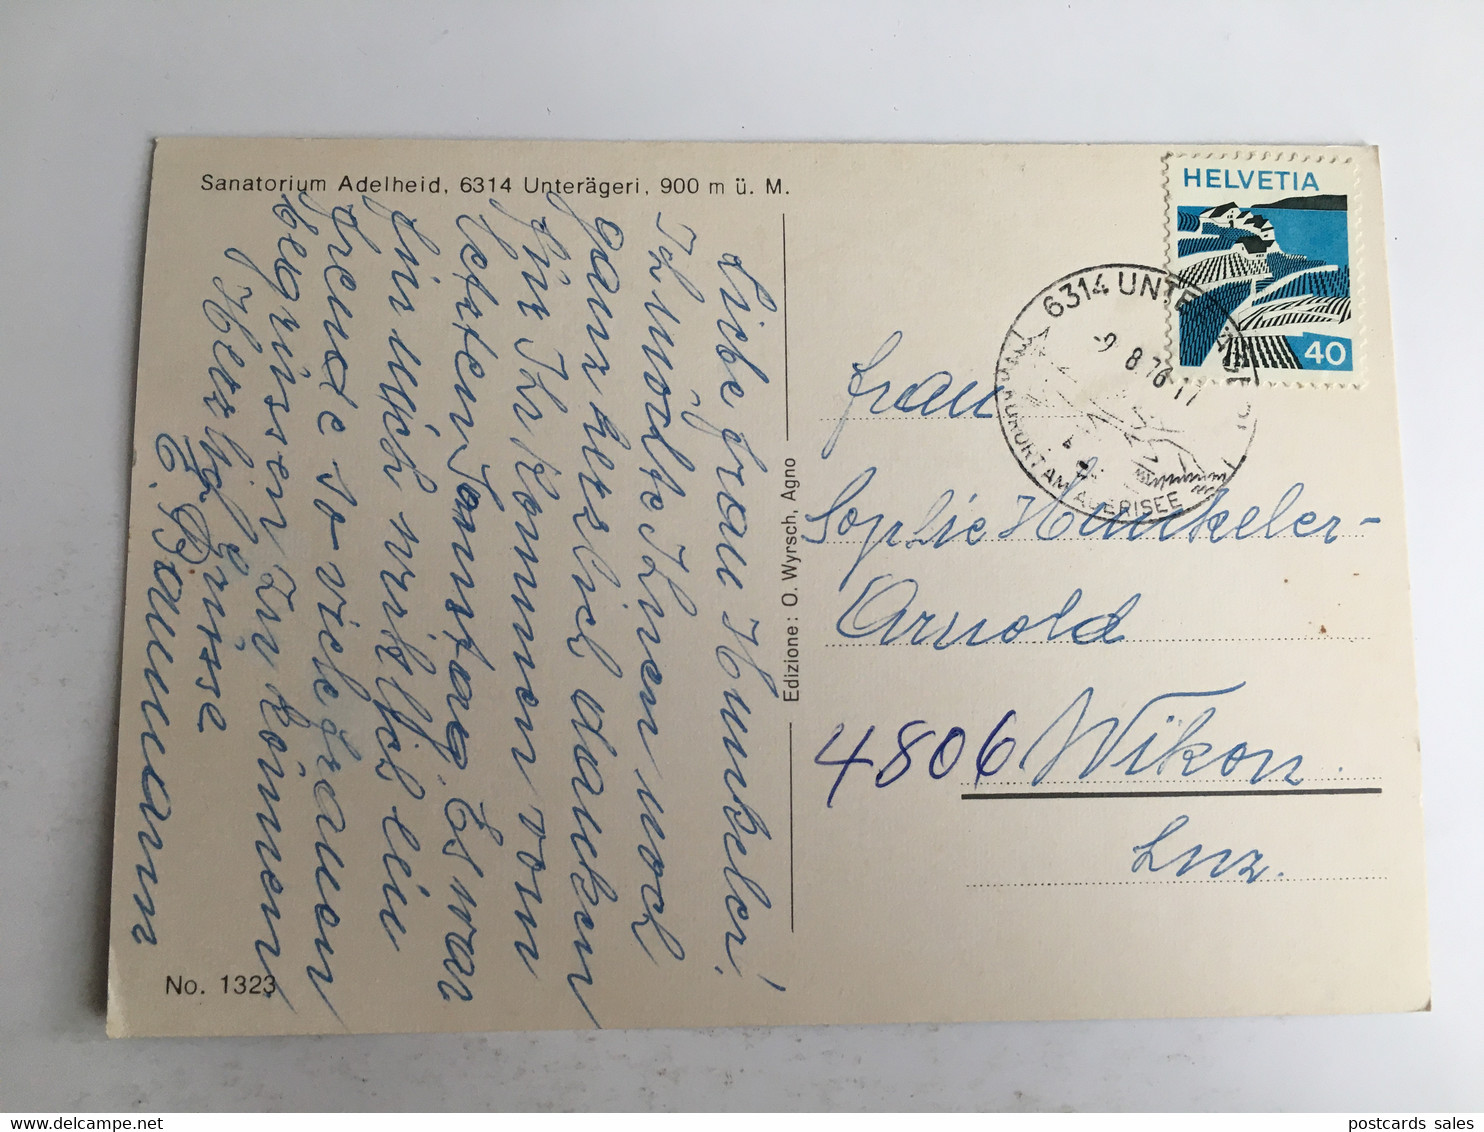 Sanatorium Adelheid, 6314 Unterägeri, 900 m ü. M.
Liebe Frau Hunkeler!
Ich möchte Ihnen noch
ganz herzlich danken
für Ihr Kommen vom
letzten Samstag. Es war
für mich wirklich eine
Freude so viele Frauen
begrüssen zu können.
Herzlich grüsse
E. Baumann
No. 1323
Edizione: O. Wyrsch, Agno
HELVETIA
40
6314 UNTERÄGERI
-9. 8. 76-17
KURORT AM AEGERISEE
Frau
Sophie Hunkeler-
Arnold
4806 Wikon.
Luz.
postcards sales